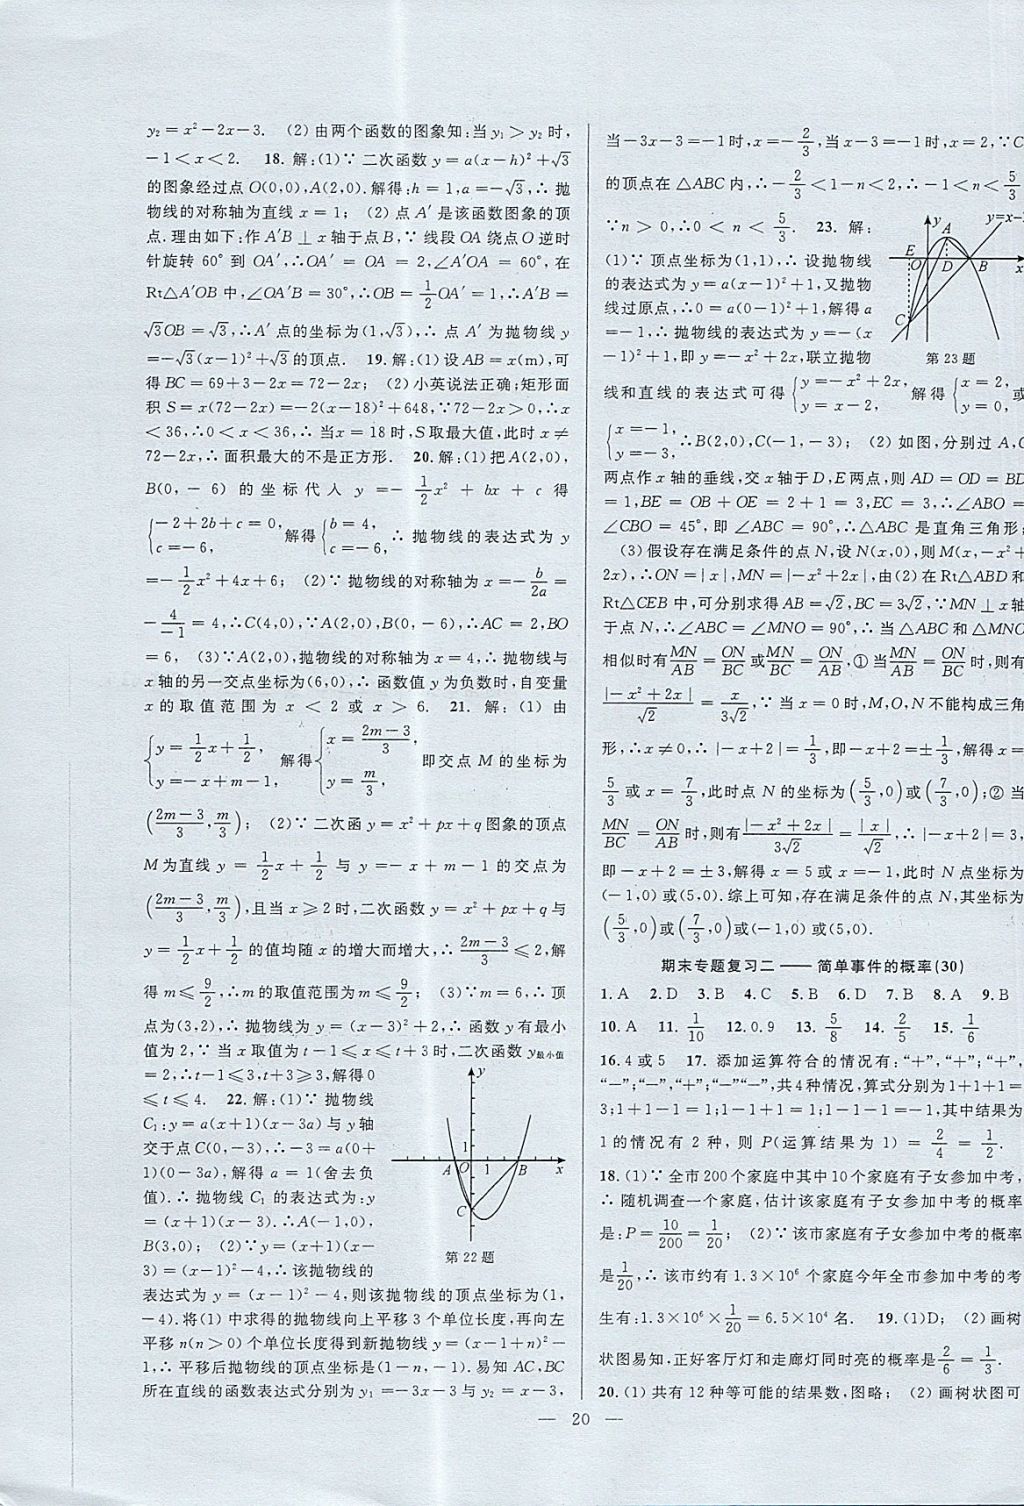 y₂=x²-2x-3. (2)由两个函数的图象知:当y₁>y₂时,
-1<x<2. 18. 解:(1)∵ 二次函数y=a(x-h)²+√3
的图象经过点O(0,0),A(2,0).解得:h=1,a=-√3,∴ 抛
物线的对称轴为直线x=1; (2)点A′是该函数图象的顶
点.理由如下:作A′B⊥x轴于点B,∵ 线段OA绕点O逆时
针旋转60°到OA′,∴OA′=OA=2,∠A′OA=60°,在
Rt△A′OB中,∠OA′B=30°,∴OB=1/2OA′=1,∴A′B=
√3OB=√3,∴A′点的坐标为(1,√3),∴ 点A′为抛物线y
=-√3(x-1)²+√3的顶点. 19. 解:(1)设AB=x(m),可
得BC=69+3-2x=72-2x; (2)小英说法正确;矩形面
积S=x(72-2x)=-2(x-18)²+648,∵72-2x>0,∴x
<36,∴0<x<36,∴ 当x=18时,S取最大值,此时x≠
72-2x,∴ 面积最大的不是正方形. 20. 解:(1)把A(2,0),
B(0,-6)的坐标代入y=-1/2x²+bx+c得
{-2+2b+c=0, c=-6, 解得{b=4, c=-6, ∴ 抛物线的表达式为y
=-1/2x²+4x+6; (2)∵ 抛物线的对称轴为x=-b/2a=
-4/-1=4,∴C(4,0),∵A(2,0),B(0,-6),∴AC=2,BO
=6, (3)∵A(2,0),抛物线的对称轴为x=4,∴ 抛物线与
x轴的另一交点坐标为(6,0),∴ 函数值y为负数时,自变量
x的取值范围为x<2或x>6. 21. 解:(1)由
{y=1/2x+1/2, y=-x+m-1, 解得{x=(2m-3)/3, y=m/3, 即交点M的坐标为
((2m-3)/3,m/3); (2)∵ 二次函y=x²+px+q图象的顶点
M为直线y=1/2x+1/2与y=-x+m-1的交点为
((2m-3)/3,m/3),且当x≥2时,二次函数y=x²+px+q与
y=1/2x+1/2的值均随x的增大而增大,∴(2m-3)/3≤2,解
得m≤9/2,∴m的取值范围为m≤9/2; (3)∵m=6,∴ 顶
点为(3,2),∴ 抛物线为y=(x-3)²+2,∴ 函数y有最小
值为2,∵ 当x取值为t-1≤x≤t+3时,二次函数y最小值
=2,∴t-1≤3,t+3≥3,解得0
≤t≤4. 22. 解:(1)∵ 抛物线
C₁:y=a(x+1)(x-3a)与y轴
交于点C(0,-3),∴-3=a(0+
1)(0-3a),解得a=1(舍去负
值).∴ 抛物线C₁的表达式为:y
=(x+1)(x-3).∴A(-1,0),
B(3,0); (2)∵y=(x+1)(x-
3)=(x-1)²-4,∴ 该抛物线的
y
1
A O 1 B x
C
第22题
表达式为y=(x-1)²-4,则该抛物线的顶点坐标为(1,
-4).将(1)中求得的抛物线向上平移3个单位长度,再向左
平移n(n>0)个单位长度得到新抛物线y=(x-1+n)²-
1,∴ 平移后抛物线的顶点坐标是(1-n,-1).易知AC,BC
所在直线的函数表达式分别为y₁=-3x-3与y₂=x-3,
当-3x-3=-1时,x=-2/3,当x-3=-1时,x=2,∵C
的顶点在△ABC内,∴-2/3<1-n<2,∴-1<n<5/3
∵n>0,∴0<n<5/3. 23. 解:
(1)∵ 顶点坐标为(1,1),∴ 设抛物线
的表达式为y=a(x-1)²+1,又抛物
线过原点,∴0=a(0-1)²+1,解得a
=-1,∴ 抛物线的表达式为y=-(x
-1)²+1,即y=-x²+2x,联立抛物
y y=x-
A
E O D B x
C
第23题
线和直线的表达式可得{y=-x²+2x, y=x-2, 解得{x=2, y=0, 或
{x=-1, y=-3, ∴B(2,0),C(-1,-3); (2)如图,分别过A,C
两点作x轴的垂线,交x轴于D,E两点,则AD=OD=BD
=1,BE=OB+OE=2+1=3,EC=3,∴∠ABO=
∠CBO=45°,即∠ABC=90°,∴△ABC是直角三角形;
(3)假设存在满足条件的点N,设N(x,0),则M(x,-x²+
2x),∴ON=|x|,MN=|-x²+2x|,由(2)在Rt△ABD和
Rt△CEB中,可分别求得AB=√2,BC=3√2,∵MN⊥x轴
于点N,∴∠ABC=∠MNO=90°,∴ 当△ABC和△MNO
相似时有MN/AB=ON/BC或MN/BC=ON/AB,①当MN/AB=ON/BC时,则有
|-x²+2x|/√2=x/3√2,∵ 当x=0时,M,O,N不能构成三角
形,∴x≠0,∴|-x+2|=1/3,即-x+2=±1/3,解得x=
5/3或x=7/3,此时点N的坐标为(5/3,0)或(7/3,0);②当
MN/BC=ON/AB时,则有|-x²+2x|/3√2=|x|/√2,∴|-x+2|=3,
即-x+2=±3,解得x=5或x=-1,此时N点坐标为
(-1,0)或(5,0).综上可知,存在满足条件的点N,其坐标为
(5/3,0)或(7/3,0)或(-1,0)或(5,0).
期末专题复习二——简单事件的概率(30)
1. A 2. D 3. B 4. C 5. B 6. D 7. B 8. A 9. B
10. A 11. 1/10 12. 0.9 13. 5/8 14. 2/5 15. 1/6
16. 4或5 17. 添加运算符合的情况有:“+”,“+”;“+”,
“-”;“-”,“+”;“-”“-”,共4种情况,算式分别为1+1+1=
3;1+1-1=1;1-1+1=1;1-1-1=-1,其中结果为
1的情况有2种,则P(运算结果为1)=2/4=1/2.
18. (1)∵ 全市200个家庭中其中10个家庭有子女参加中考,
∴ 随机调查一个家庭,估计该家庭有子女参加中考的概率
是:P=10/200=1/20; (2)∵ 该市家庭有子女参加中考的概率
是1/20,∴ 该市约有1.3×10⁶个家庭今年全市参加中考的考
生有:1.3×10⁶×1/20=6.5×10⁴名. 19. (1)D; (2)画树
状图易知,正好客厅灯和走廊灯同时亮的概率是2/6=1/3.
20. (1)共有12种等可能的结果数,图略; (2)画树状图可
— 20 —